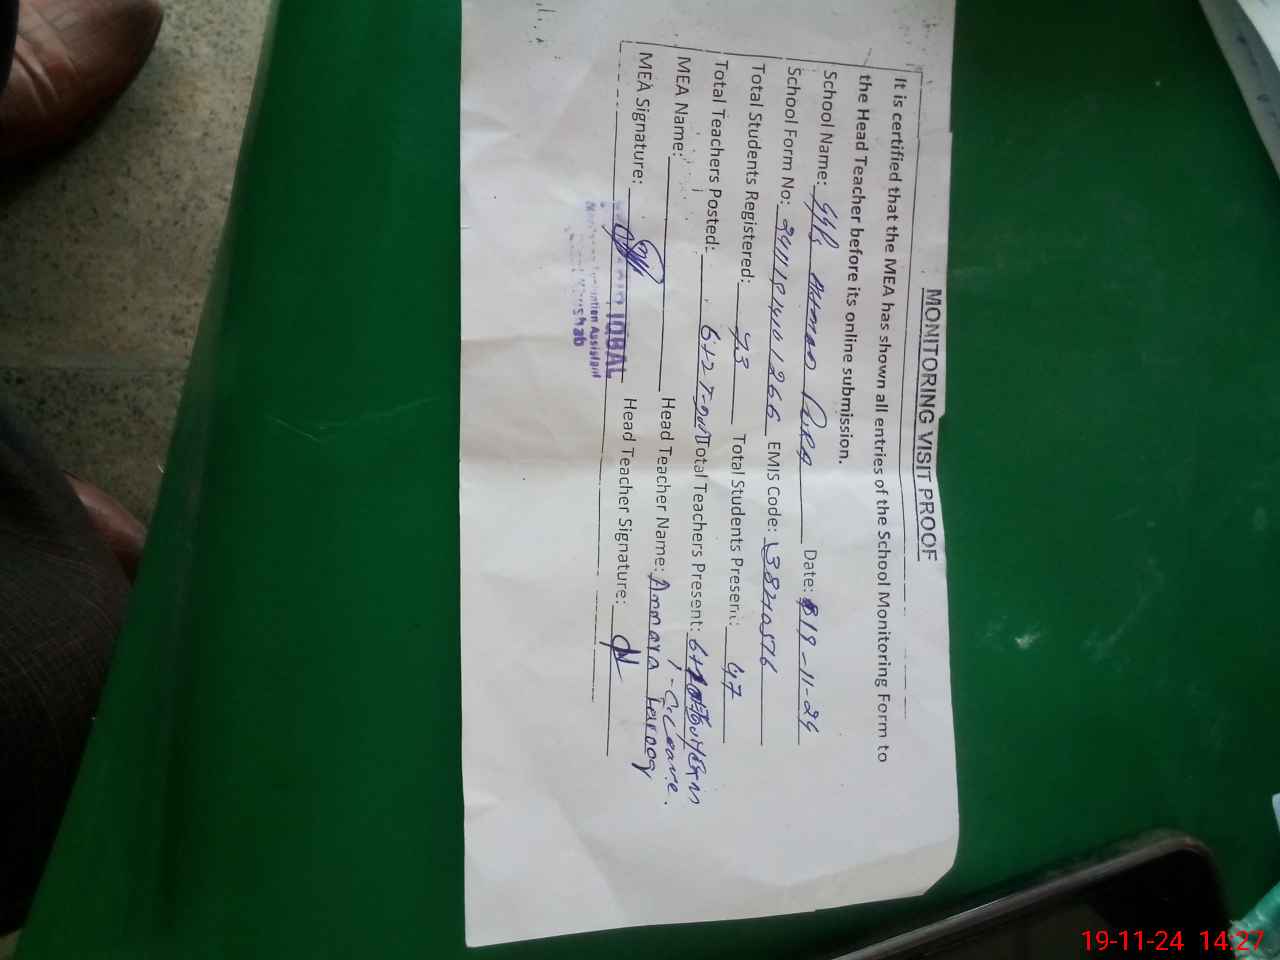 MONITORING VISIT PROOF
It is certified that the MEA has shown all entries of the School Monitoring Form to
the Head Teacher before its online submission.
School Name: Date: 19-11-24
School Form No: EMIS Code: 38240576
Total Students Registered: 73 Total Students Present: 47
Total Teachers Posted: 6+2 Total Teachers Present:
1-C.Leave.
MEA Name: Head Teacher Name: Ammara Farooq
MEA Signature: Head Teacher Signature:
IQBAL
Assistant
Khushab
19-11-24 14:27